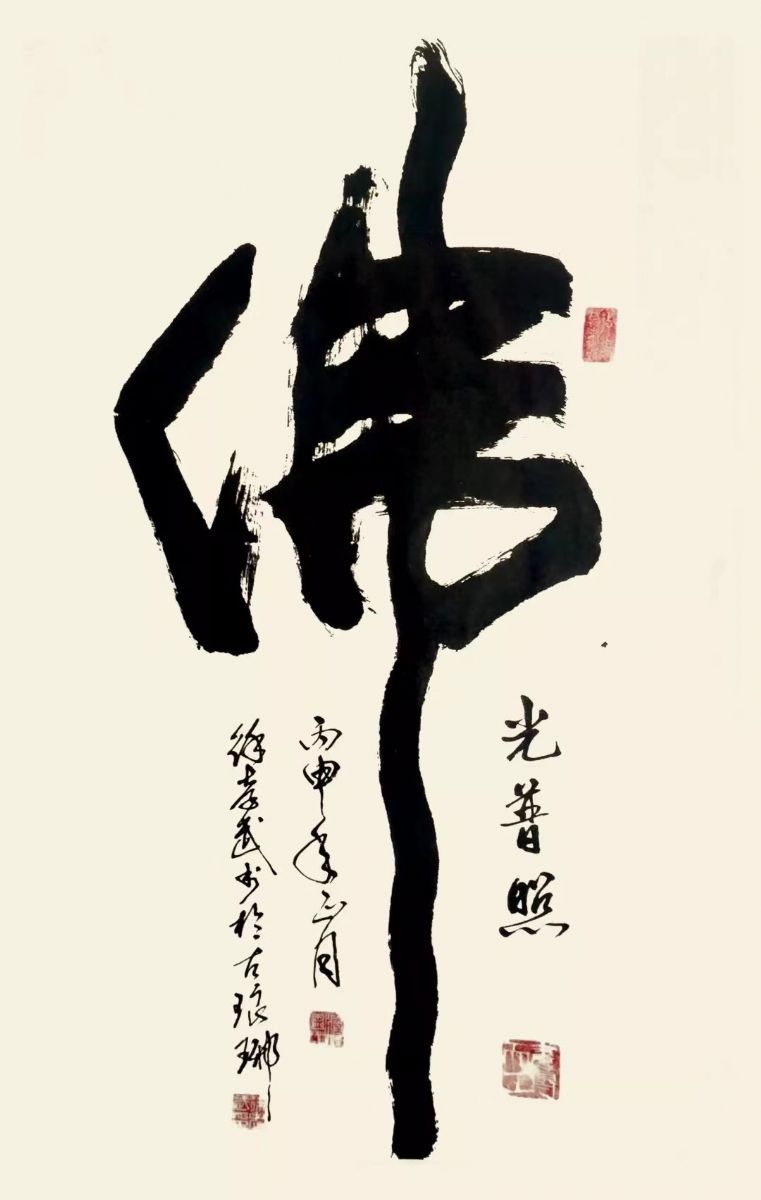 佛
光普照
丙申年正月
徐孝武书於古琅琊